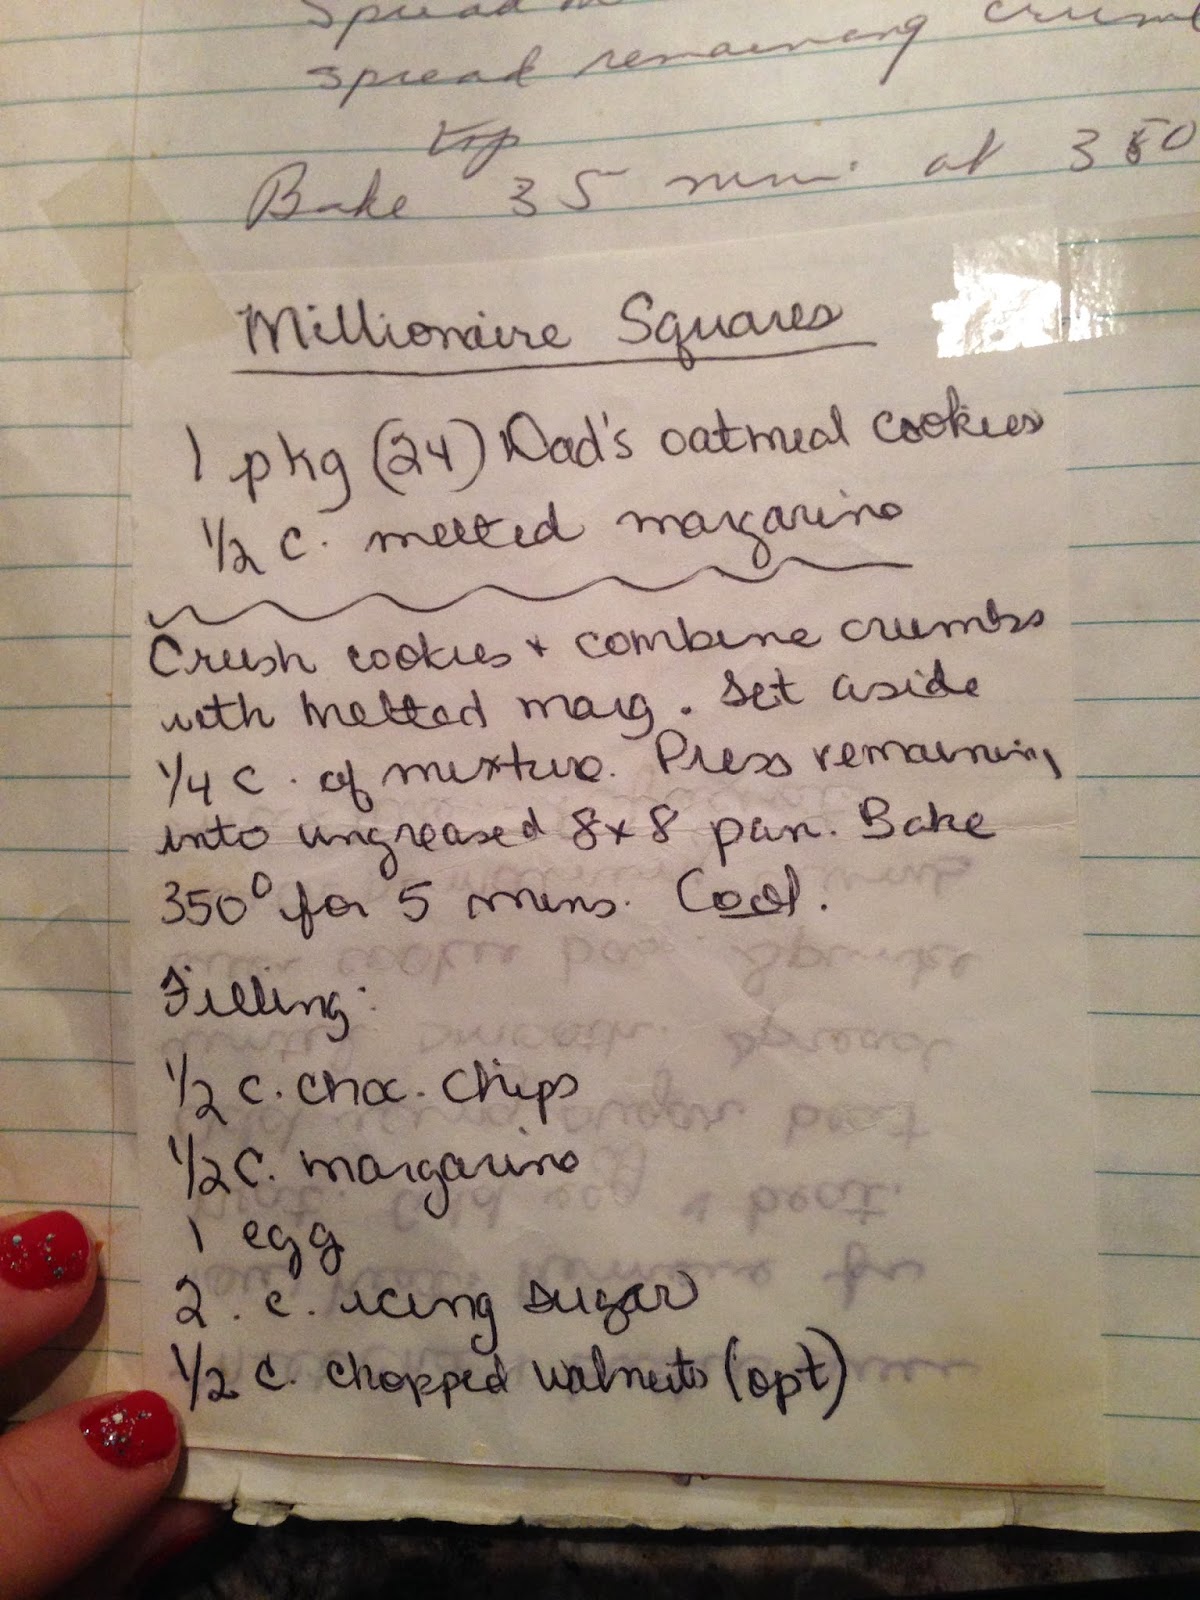 Spread
spread remaining
top
Bake 35 min. at 350
Millionaire Squares
1 pkg (24) Dad's oatmeal cookies
1/2 c. melted margarine
Crush cookies + combine crumbs
with melted marg. Set aside
1/4 c. of mixture. Press remaining
into ungreased 8x8 pan. Bake
350° for 5 mins. Cool.
Filling:
1/2 c. choc. chips
1/2 c. margarine
1 egg
2. c. icing sugar
1/2 c. chopped walnuts (opt)